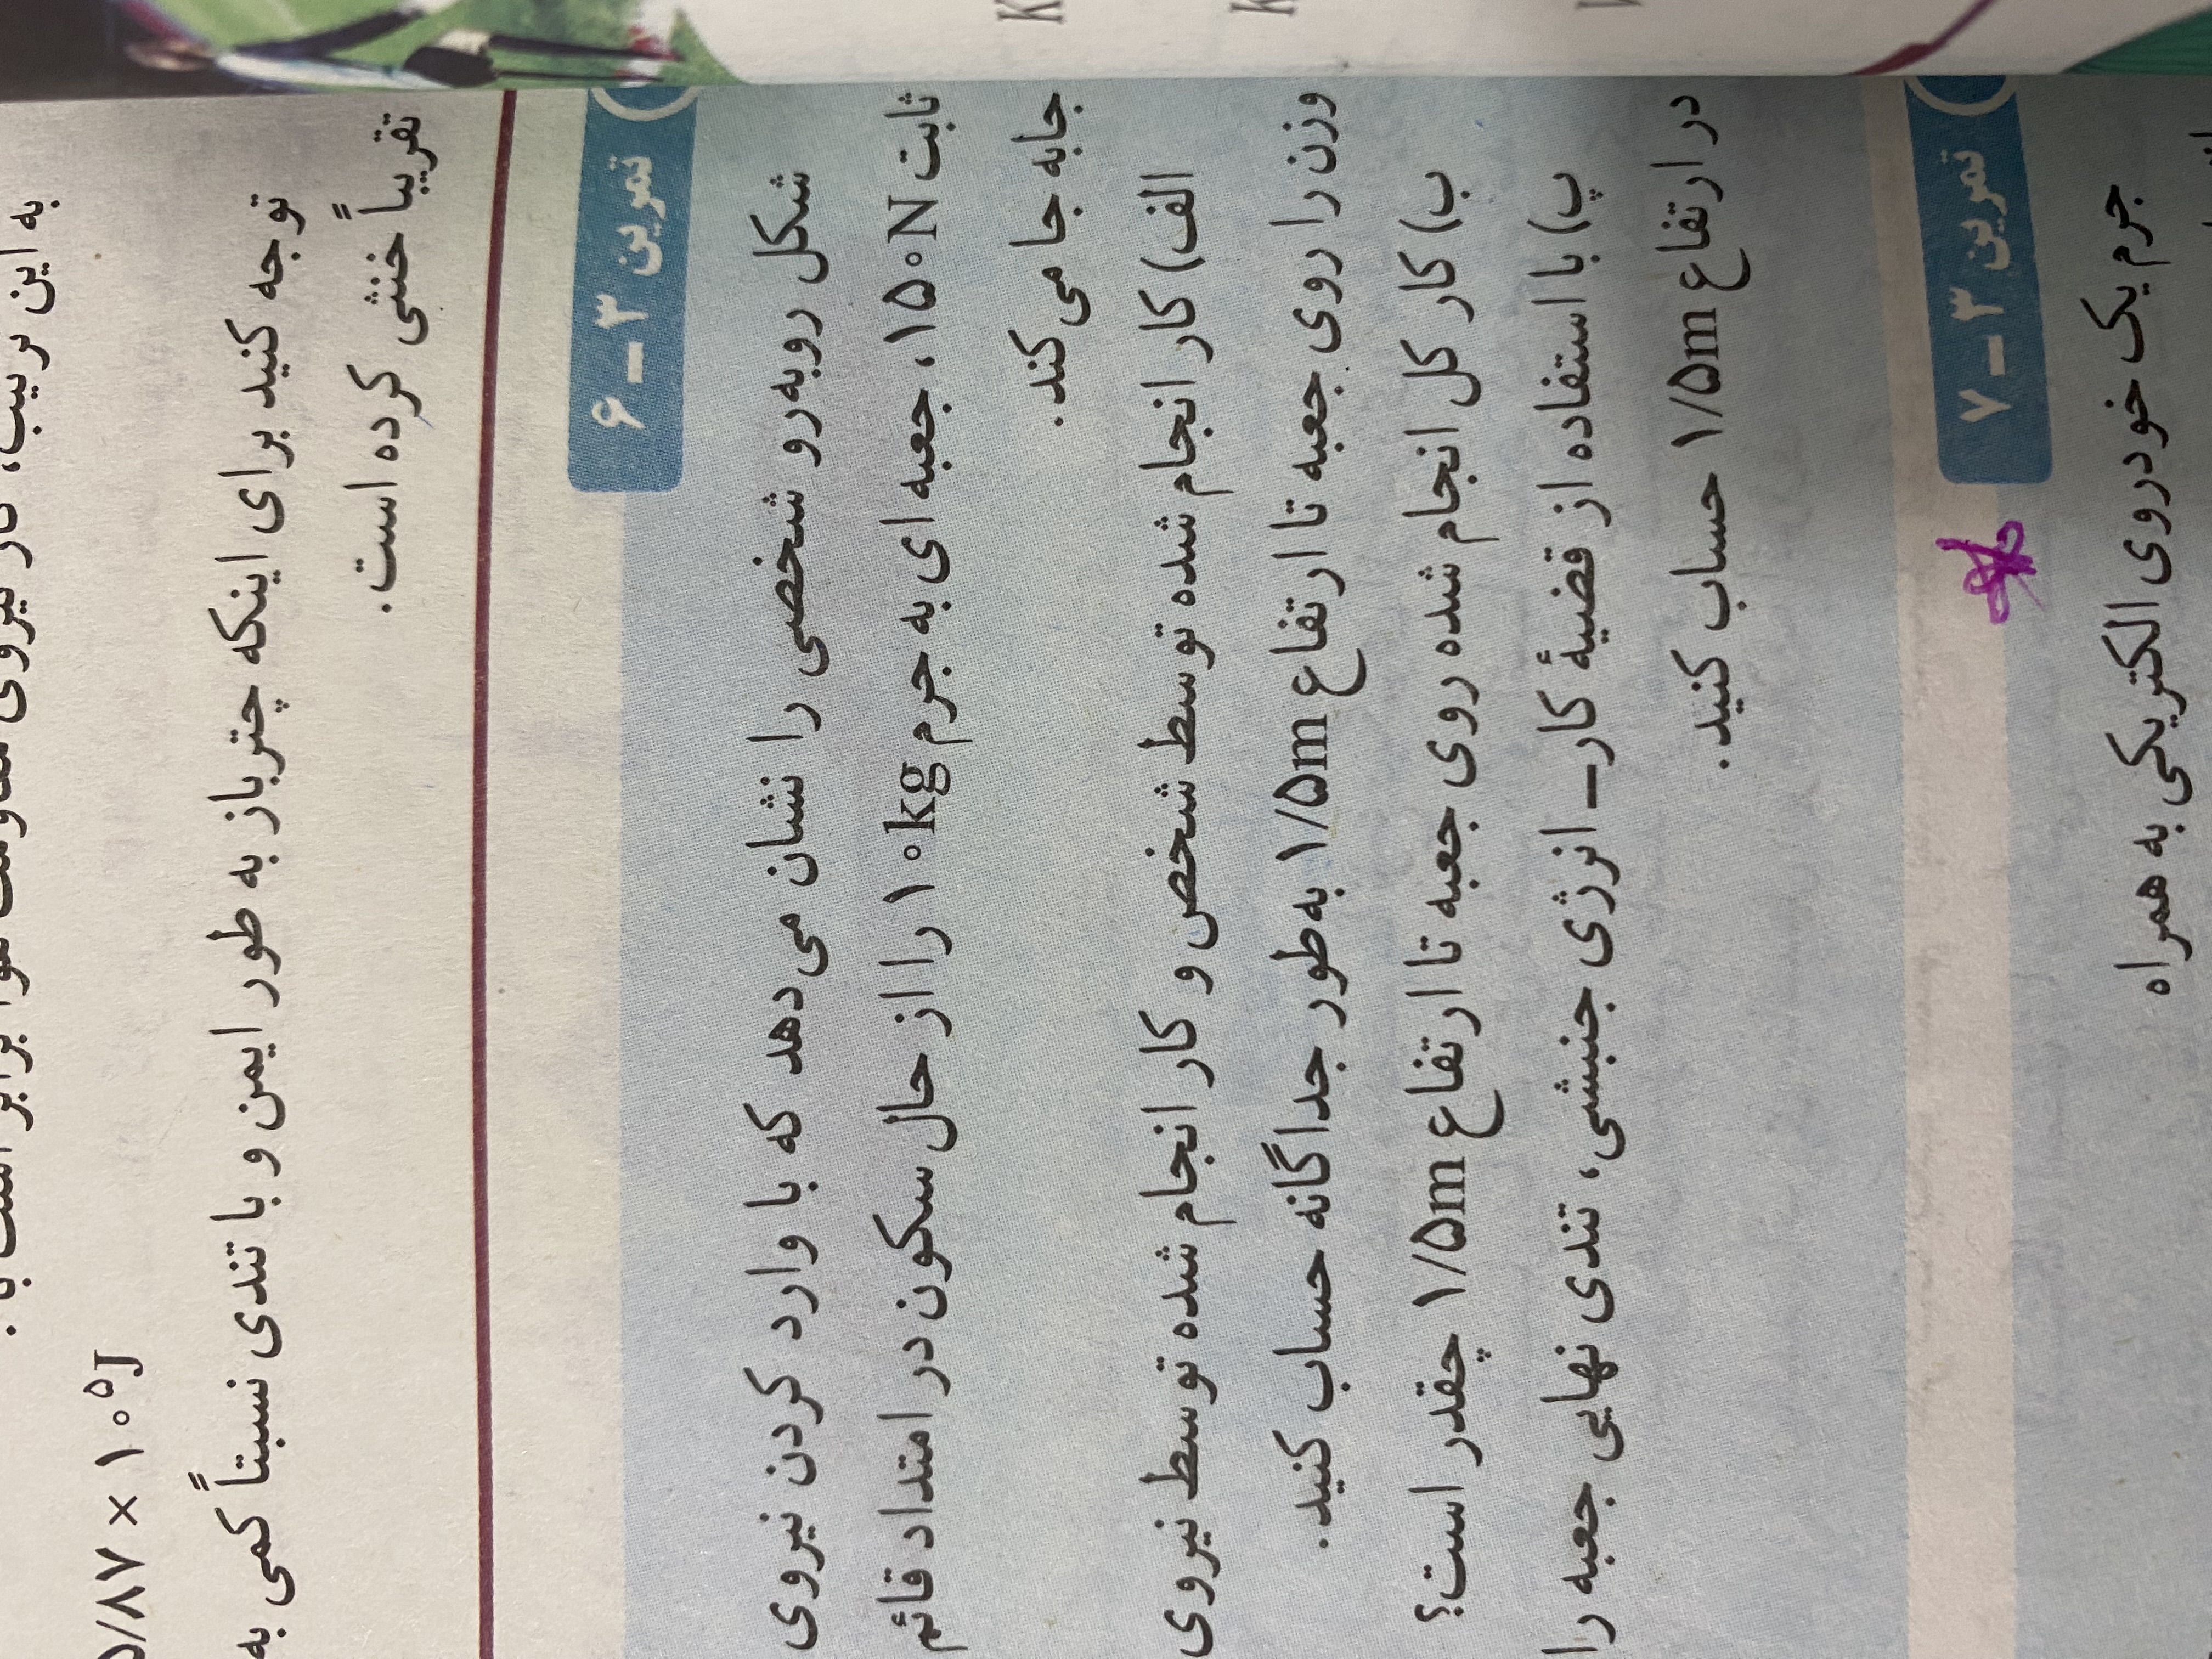 ۵/۸۷ × ۱۰⁵J
توجه کنید برای اینکه چترباز به طور ایمن و با تندی نسبتاً کمی به
تقریباً خنثی کرده است.
تمرین ۳ – ۶
شکل روبه‌رو شخصی را نشان می‌دهد که با وارد کردن نیروی
ثابت ۱۵۰N، جعبه ای به جرم ۱۰kg را از حال سکون در امتداد قائم
جابه جا می کند.
الف) کار انجام شده توسط شخص و کار انجام شده توسط نیروی
وزن را روی جعبه تا ارتفاع ۱/۵m به‌طور جداگانه حساب کنید.
ب) کار کل انجام شده روی جعبه تا ارتفاع ۱/۵m چقدر است؟
پ) با استفاده از قضیهٔ کار– انرژی جنبشی، تندی نهایی جعبه را
در ارتفاع ۱/۵m حساب کنید.
تمرین ۳ – ۷
جرم یک خودروی الکتریکی به همراه